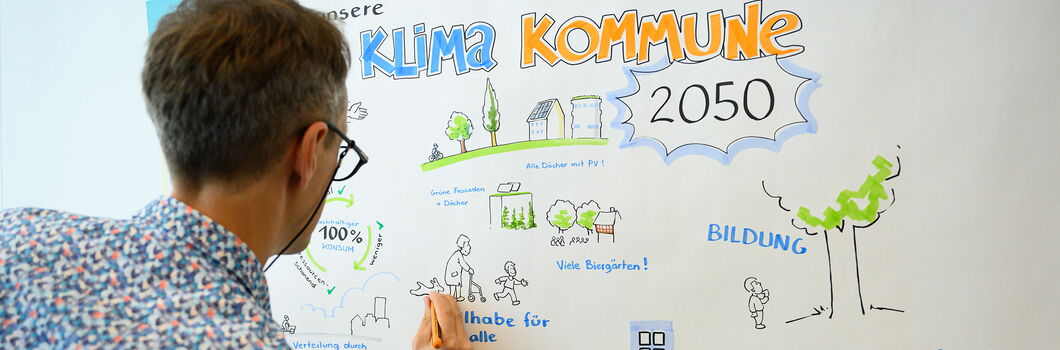 unsere
KLIMA KOMMUNE
2050
Alle Dächer mit PV!
Grüne Fassaden
+ Dächer
100%
KONSUM
weniger
Ressourcen-
schonend
BILDUNG
Viele Biergärten!
für
alle
Verteilung durch